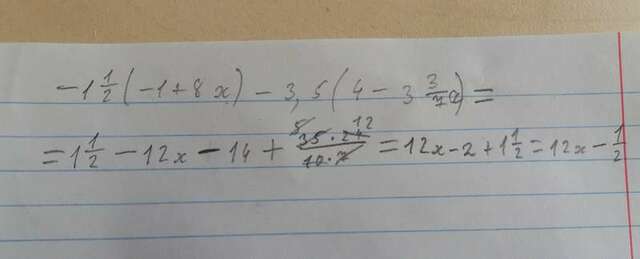 -1 1/2 (-1+8x) - 3,5 (4 - 3 3/7 x) =
= 1 1/2 - 12x - 14 + 5 12 35·24/10·7 = 12x - 2 + 1 1/2 = 12x - 1/2